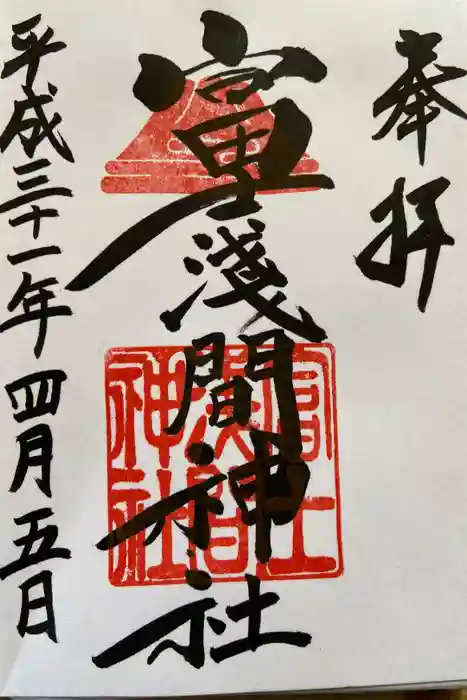 奉拝
冨士淺間神社
冨士
淺間
神社
平成三十一年四月五日